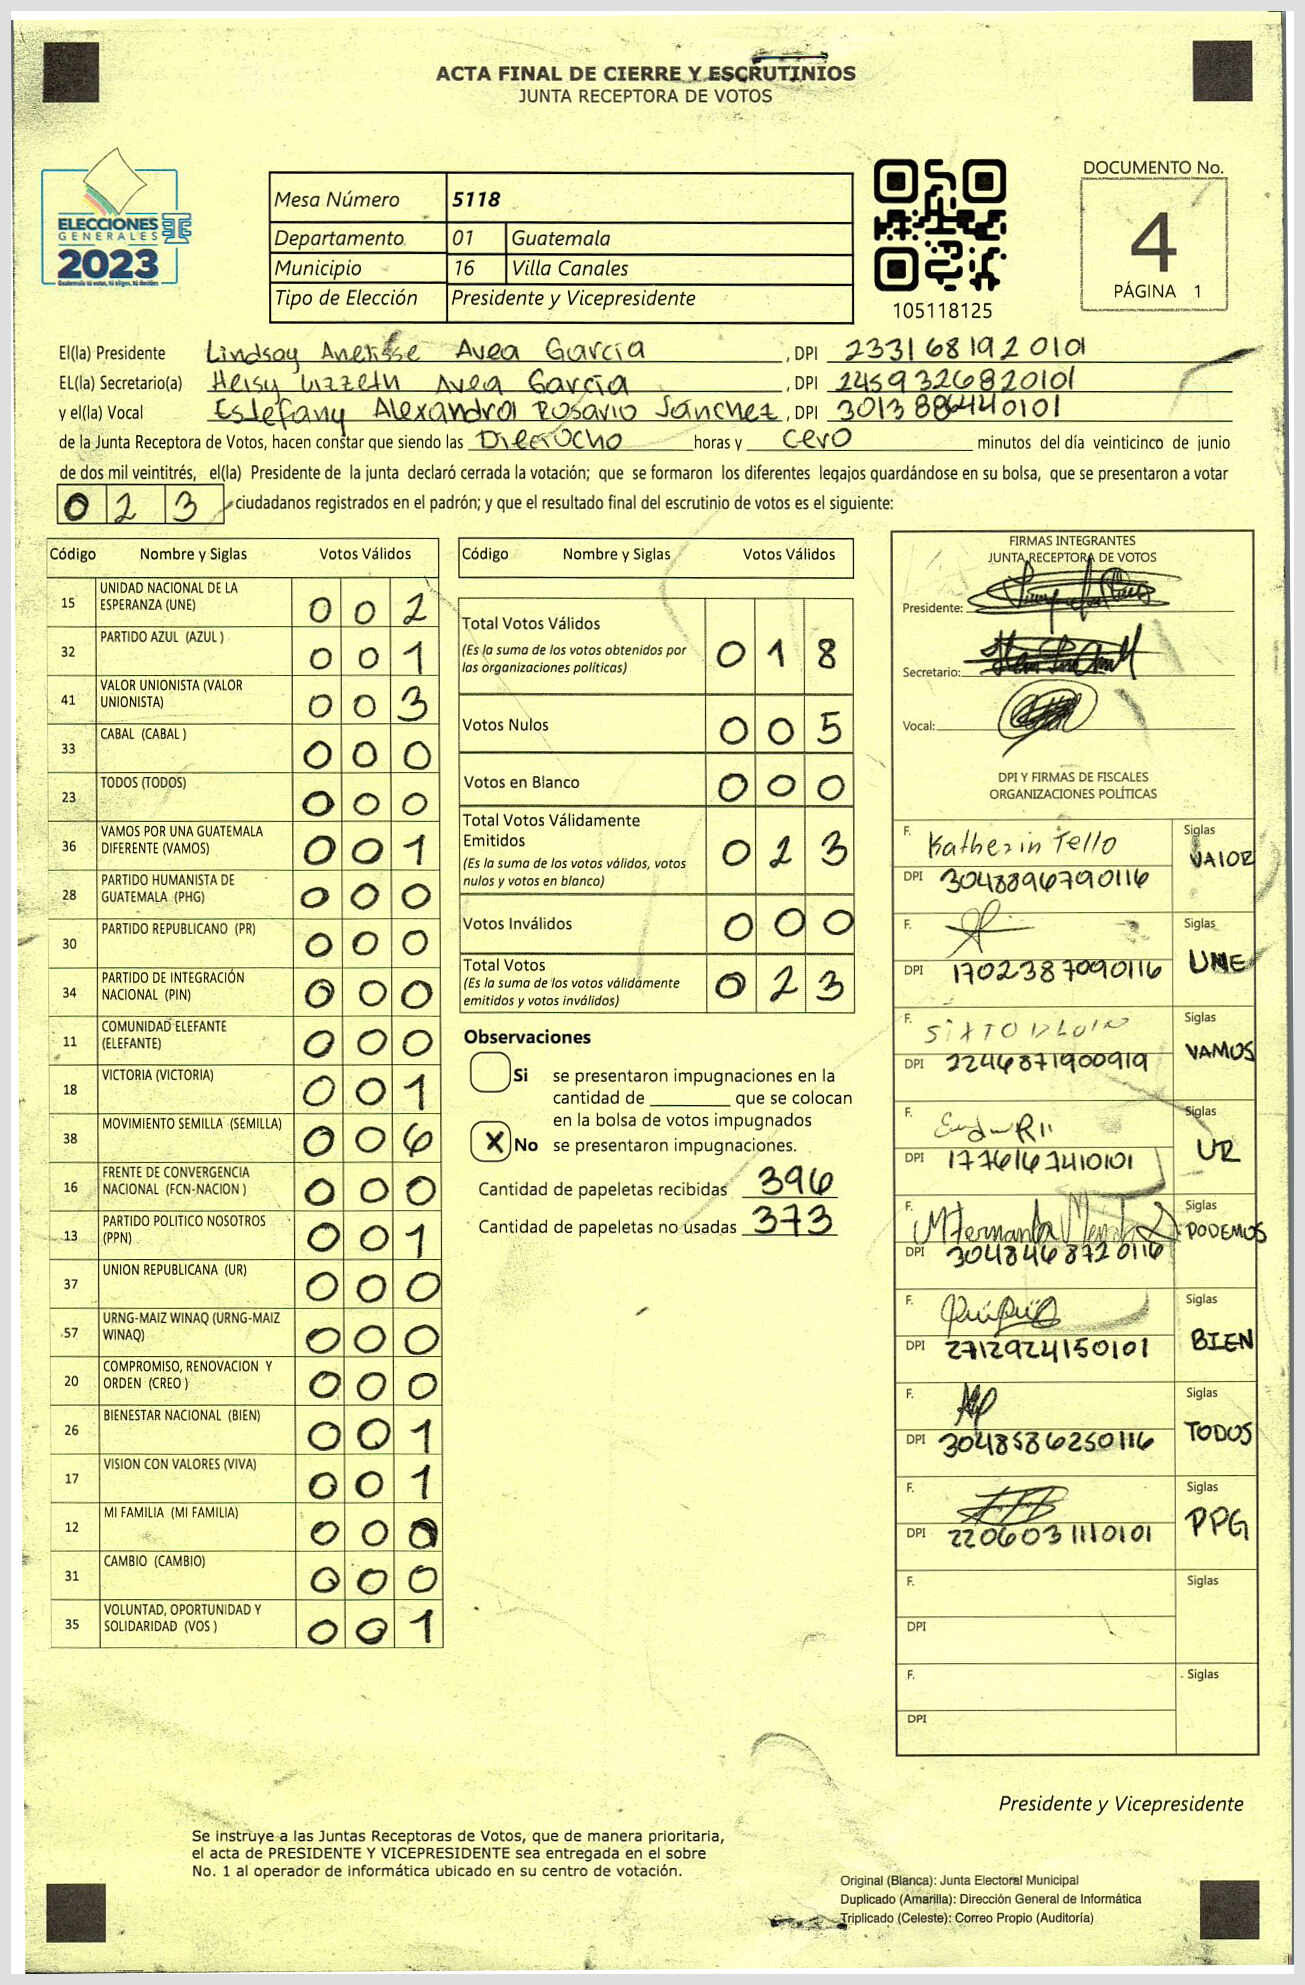 ACTA FINAL DE CIERRE Y ESCRUTINIOS
JUNTA RECEPTORA DE VOTOS
ELECCIONES
GENERALES
2023
Guatemala tú votas, tú eliges, tú decides
Mesa Número 5118
Departamento 01 Guatemala
Municipio 16 Villa Canales
Tipo de Elección Presidente y Vicepresidente
105118125
DOCUMENTO No.
4
PÁGINA 1
El(la) Presidente Lindsay Anelisse Avea García , DPI 2331681920101
EL(la) Secretario(a) Heisy Lizzeth Avea García , DPI 2459326820101
y el(la) Vocal Estefany Alexandra Rosario Sánchez , DPI 3013886440101
de la Junta Receptora de Votos, hacen constar que siendo las Dieciocho horas y cero minutos del día veinticinco de junio
de dos mil veintitrés, el(la) Presidente de la junta declaró cerrada la votación; que se formaron los diferentes legajos guardándose en su bolsa, que se presentaron a votar
0 2 3 ciudadanos registrados en el padrón; y que el resultado final del escrutinio de votos es el siguiente:
Código Nombre y Siglas Votos Válidos
15 UNIDAD NACIONAL DE LA
ESPERANZA (UNE) 0 0 2
32 PARTIDO AZUL (AZUL ) 0 0 1
41 VALOR UNIONISTA (VALOR
UNIONISTA) 0 0 3
33 CABAL (CABAL ) 0 0 0
23 TODOS (TODOS) 0 0 0
36 VAMOS POR UNA GUATEMALA
DIFERENTE (VAMOS) 0 0 1
28 PARTIDO HUMANISTA DE
GUATEMALA (PHG) 0 0 0
30 PARTIDO REPUBLICANO (PR) 0 0 0
34 PARTIDO DE INTEGRACIÓN
NACIONAL (PIN) 0 0 0
11 COMUNIDAD ELEFANTE
(ELEFANTE) 0 0 0
18 VICTORIA (VICTORIA) 0 0 1
38 MOVIMIENTO SEMILLA (SEMILLA) 0 0 6
16 FRENTE DE CONVERGENCIA
NACIONAL (FCN-NACION ) 0 0 0
13 PARTIDO POLITICO NOSOTROS
(PPN) 0 0 1
37 UNION REPUBLICANA (UR) 0 0 0
57 URNG-MAIZ WINAQ (URNG-MAIZ
WINAQ) 0 0 0
20 COMPROMISO, RENOVACION Y
ORDEN (CREO ) 0 0 0
26 BIENESTAR NACIONAL (BIEN) 0 0 1
17 VISION CON VALORES (VIVA) 0 0 1
12 MI FAMILIA (MI FAMILIA) 0 0 0
31 CAMBIO (CAMBIO) 0 0 0
35 VOLUNTAD, OPORTUNIDAD Y
SOLIDARIDAD (VOS ) 0 0 1
Código Nombre y Siglas Votos Válidos
Total Votos Válidos
(Es la suma de los votos obtenidos por
las organizaciones políticas) 0 1 8
Votos Nulos 0 0 5
Votos en Blanco 0 0 0
Total Votos Válidamente
Emitidos
(Es la suma de los votos válidos, votos
nulos y votos en blanco) 0 2 3
Votos Inválidos 0 0 0
Total Votos
(Es la suma de los votos válidamente
emitidos y votos inválidos) 0 2 3
Observaciones
Si se presentaron impugnaciones en la
cantidad de ________ que se colocan
en la bolsa de votos impugnados
X No se presentaron impugnaciones.
Cantidad de papeletas recibidas 396
Cantidad de papeletas no usadas 373
FIRMAS INTEGRANTES
JUNTA RECEPTORA DE VOTOS
Presidente:
Secretario:
Vocal:
DPI Y FIRMAS DE FISCALES
ORGANIZACIONES POLÍTICAS
F. Katherin Tello Siglas
DPI 3048896790116 VALOR
F. Siglas
DPI 1702387090116 UNE
F. Sixto Siglas
DPI 2246871900919 VAMOS
F. Siglas
DPI 1776167410101 UR
F. Siglas
DPI 3048468720116 PODEMOS
F. Siglas
DPI 2712924150101 BIEN
F. Siglas
DPI 3048586250116 TODOS
F. Siglas
DPI 2206031110101 PPG
F. Siglas
DPI
F. Siglas
DPI
Presidente y Vicepresidente
Se instruye a las Juntas Receptoras de Votos, que de manera prioritaria,
el acta de PRESIDENTE Y VICEPRESIDENTE sea entregada en el sobre
No. 1 al operador de informática ubicado en su centro de votación.
Original (Blanca): Junta Electoral Municipal
Duplicado (Amarilla): Dirección General de Informática
Triplicado (Celeste): Correo Propio (Auditoría)